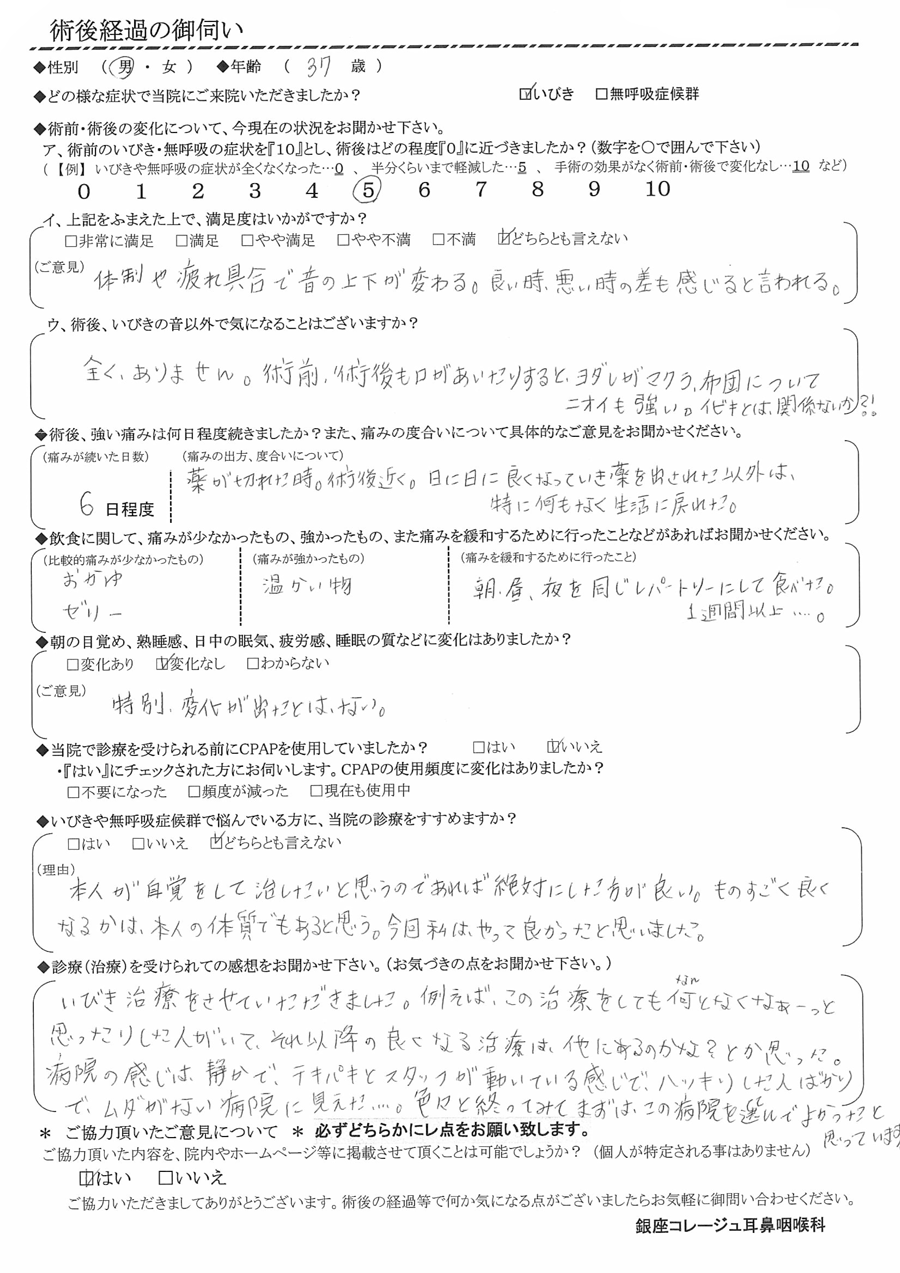 術後経過の御伺い
◆性別 （ 男 ・ 女 ） ◆年齢 （ 37 歳 ）
◆どの様な症状で当院にご来院いただきましたか？ ☑いびき □無呼吸症候群
◆術前・術後の変化について、今現在の状況をお聞かせ下さい。
ア、術前のいびき・無呼吸の症状を『10』とし、術後はどの程度『0』に近づきましたか？（数字を○で囲んで下さい）
（【例】いびきや無呼吸の症状が全くなくなった…0 、 半分くらいまで軽減した…5 、 手術の効果がなく術前・術後で変化なし…10 など）
0 1 2 3 4 5 6 7 8 9 10
イ、上記をふまえた上で、満足度はいかがですか？
□非常に満足 □満足 □やや満足 □やや不満 □不満 ☑どちらとも言えない
（ご意見） 体制や疲れ具合で音の上下が変わる。良い時、悪い時の差も感じると言われる。
ウ、術後、いびきの音以外で気になることはございますか？
全く、ありません。術前、術後も口があいたりすると、ヨダレがマクラ、布団について
ニオイも強い。イビキとは、関係ないか?!!
◆術後、強い痛みは何日程度続きましたか？また、痛みの度合いについて具体的なご意見をお聞かせください。
（痛みが続いた日数） （痛みの出方、度合いについて）
薬が切れた時。術後近く。日に日に良くなっていき薬を出された以外は、
6 日程度 特に何もなく生活に戻れた。
◆飲食に関して、痛みが少なかったもの、強かったもの、また痛みを緩和するために行ったことなどがあればお聞かせください。
（比較的痛みが少なかったもの） （痛みが強かったもの） （痛みを緩和するために行ったこと）
おかゆ 温かい物 朝、昼、夜を同じレパートリーにして食べた。
ゼリー 1週間以上…。
◆朝の目覚め、熟睡感、日中の眠気、疲労感、睡眠の質などに変化はありましたか？
□変化あり ☑変化なし □わからない
（ご意見） 特別、変化が出たことは、ない。
◆当院で診療を受けられる前にCPAPを使用していましたか？ □はい ☑いいえ
・『はい』にチェックされた方にお伺いします。CPAPの使用頻度に変化はありましたか？
□不要になった □頻度が減った □現在も使用中
◆いびきや無呼吸症候群で悩んでいる方に、当院の診療をすすめますか？
□はい □いいえ ☑どちらとも言えない
（理由） 本人が自覚をして治したいと思うのであれば絶対にした方が良い。ものすごく良く
なるかは、本人の体質でもあると思う。今回私は、やって良かったと思いました。
◆診療（治療）を受けられての感想をお聞かせ下さい。（お気づきの点をお聞かせ下さい。）
いびき治療をさせていただきました。例えば、この治療をしても何となくなぁーっと
思ったりした人がいて、それ以降の良くなる治療は、他にあるのかな？とか思った。
病院の感じは、静かで、テキパキとスタッフが動いている感じで、ハッキリした人ばかり
で、ムダがない病院に見えた…。色々と終ってみてまずは、この病院を選んでよかったと
思っています
＊ ご協力頂いたご意見について ＊ 必ずどちらかにレ点をお願い致します。
ご協力頂いた内容を、院内やホームページ等に掲載させて頂くことは可能でしょうか？ （個人が特定される事はありません）
☑はい □いいえ
ご協力いただきましてありがとうございます。術後の経過等で何か気になる点がございましたらお気軽に御問い合わせください。
銀座コレージュ耳鼻咽喉科